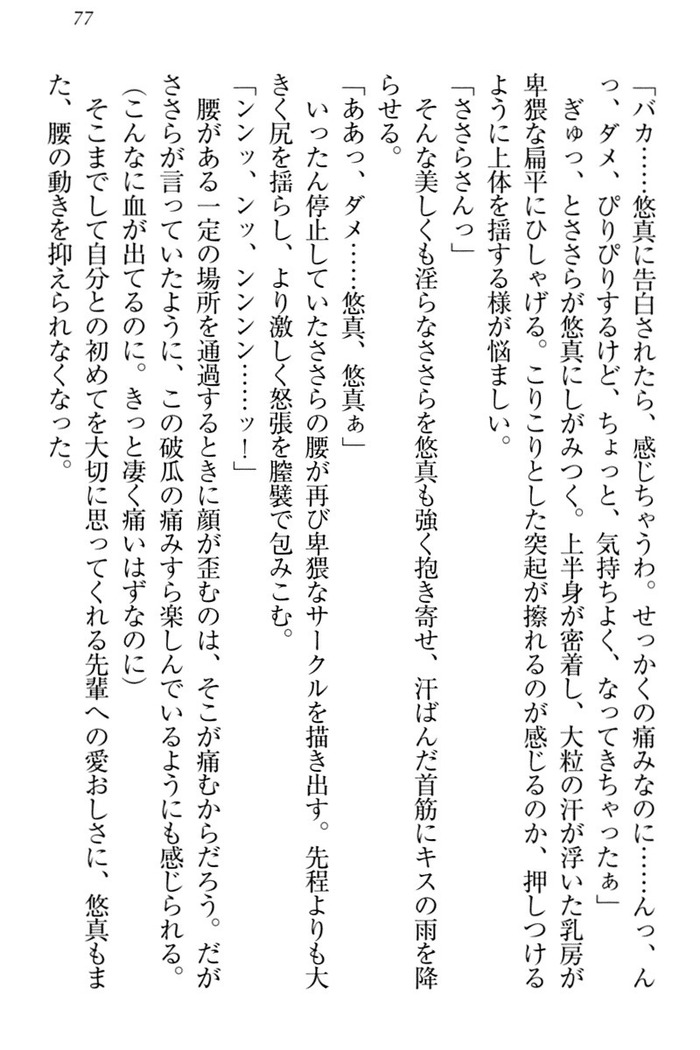 77
「バカ……悠真に告白されたら、感じちゃうわ。せっかくの痛みなのに……んっ、ん
っ、ダメ、ぴりぴりするけど、ちょっと、気持ちよく、なってきちゃったぁ」
ぎゅっ、とささらが悠真にしがみつく。上半身が密着し、大粒の汗が浮いた乳房が
卑猥な扁平にひしゃげる。こりこりとした突起が擦れるのが感じるのか、押しつける
ように上体を揺する様が悩ましい。
「ささらさんっ」
そんな美しくも淫らなささらを悠真も強く抱き寄せ、汗ばんだ首筋にキスの雨を降
らせる。
「ああっ、ダメ……悠真、悠真ぁ」
いったん停止していたささらの腰が再び卑猥なサークルを描き出す。先程よりも大
きく尻を揺らし、より激しく怒張を膣襞で包みこむ。
「ンンッ、ンッ、ンンンン……ッ！」
腰がある一定の場所を通過するときに顔が歪むのは、そこが痛むからだろう。だが
ささらが言っていたように、この破瓜の痛みすら楽しんでいるようにも感じられる。
（こんなに血が出てるのに。きっと凄く痛いはずなのに）
そこまでして自分との初めてを大切に思ってくれる先輩への愛おしさに、悠真もま
た、腰の動きを抑えられなくなった。